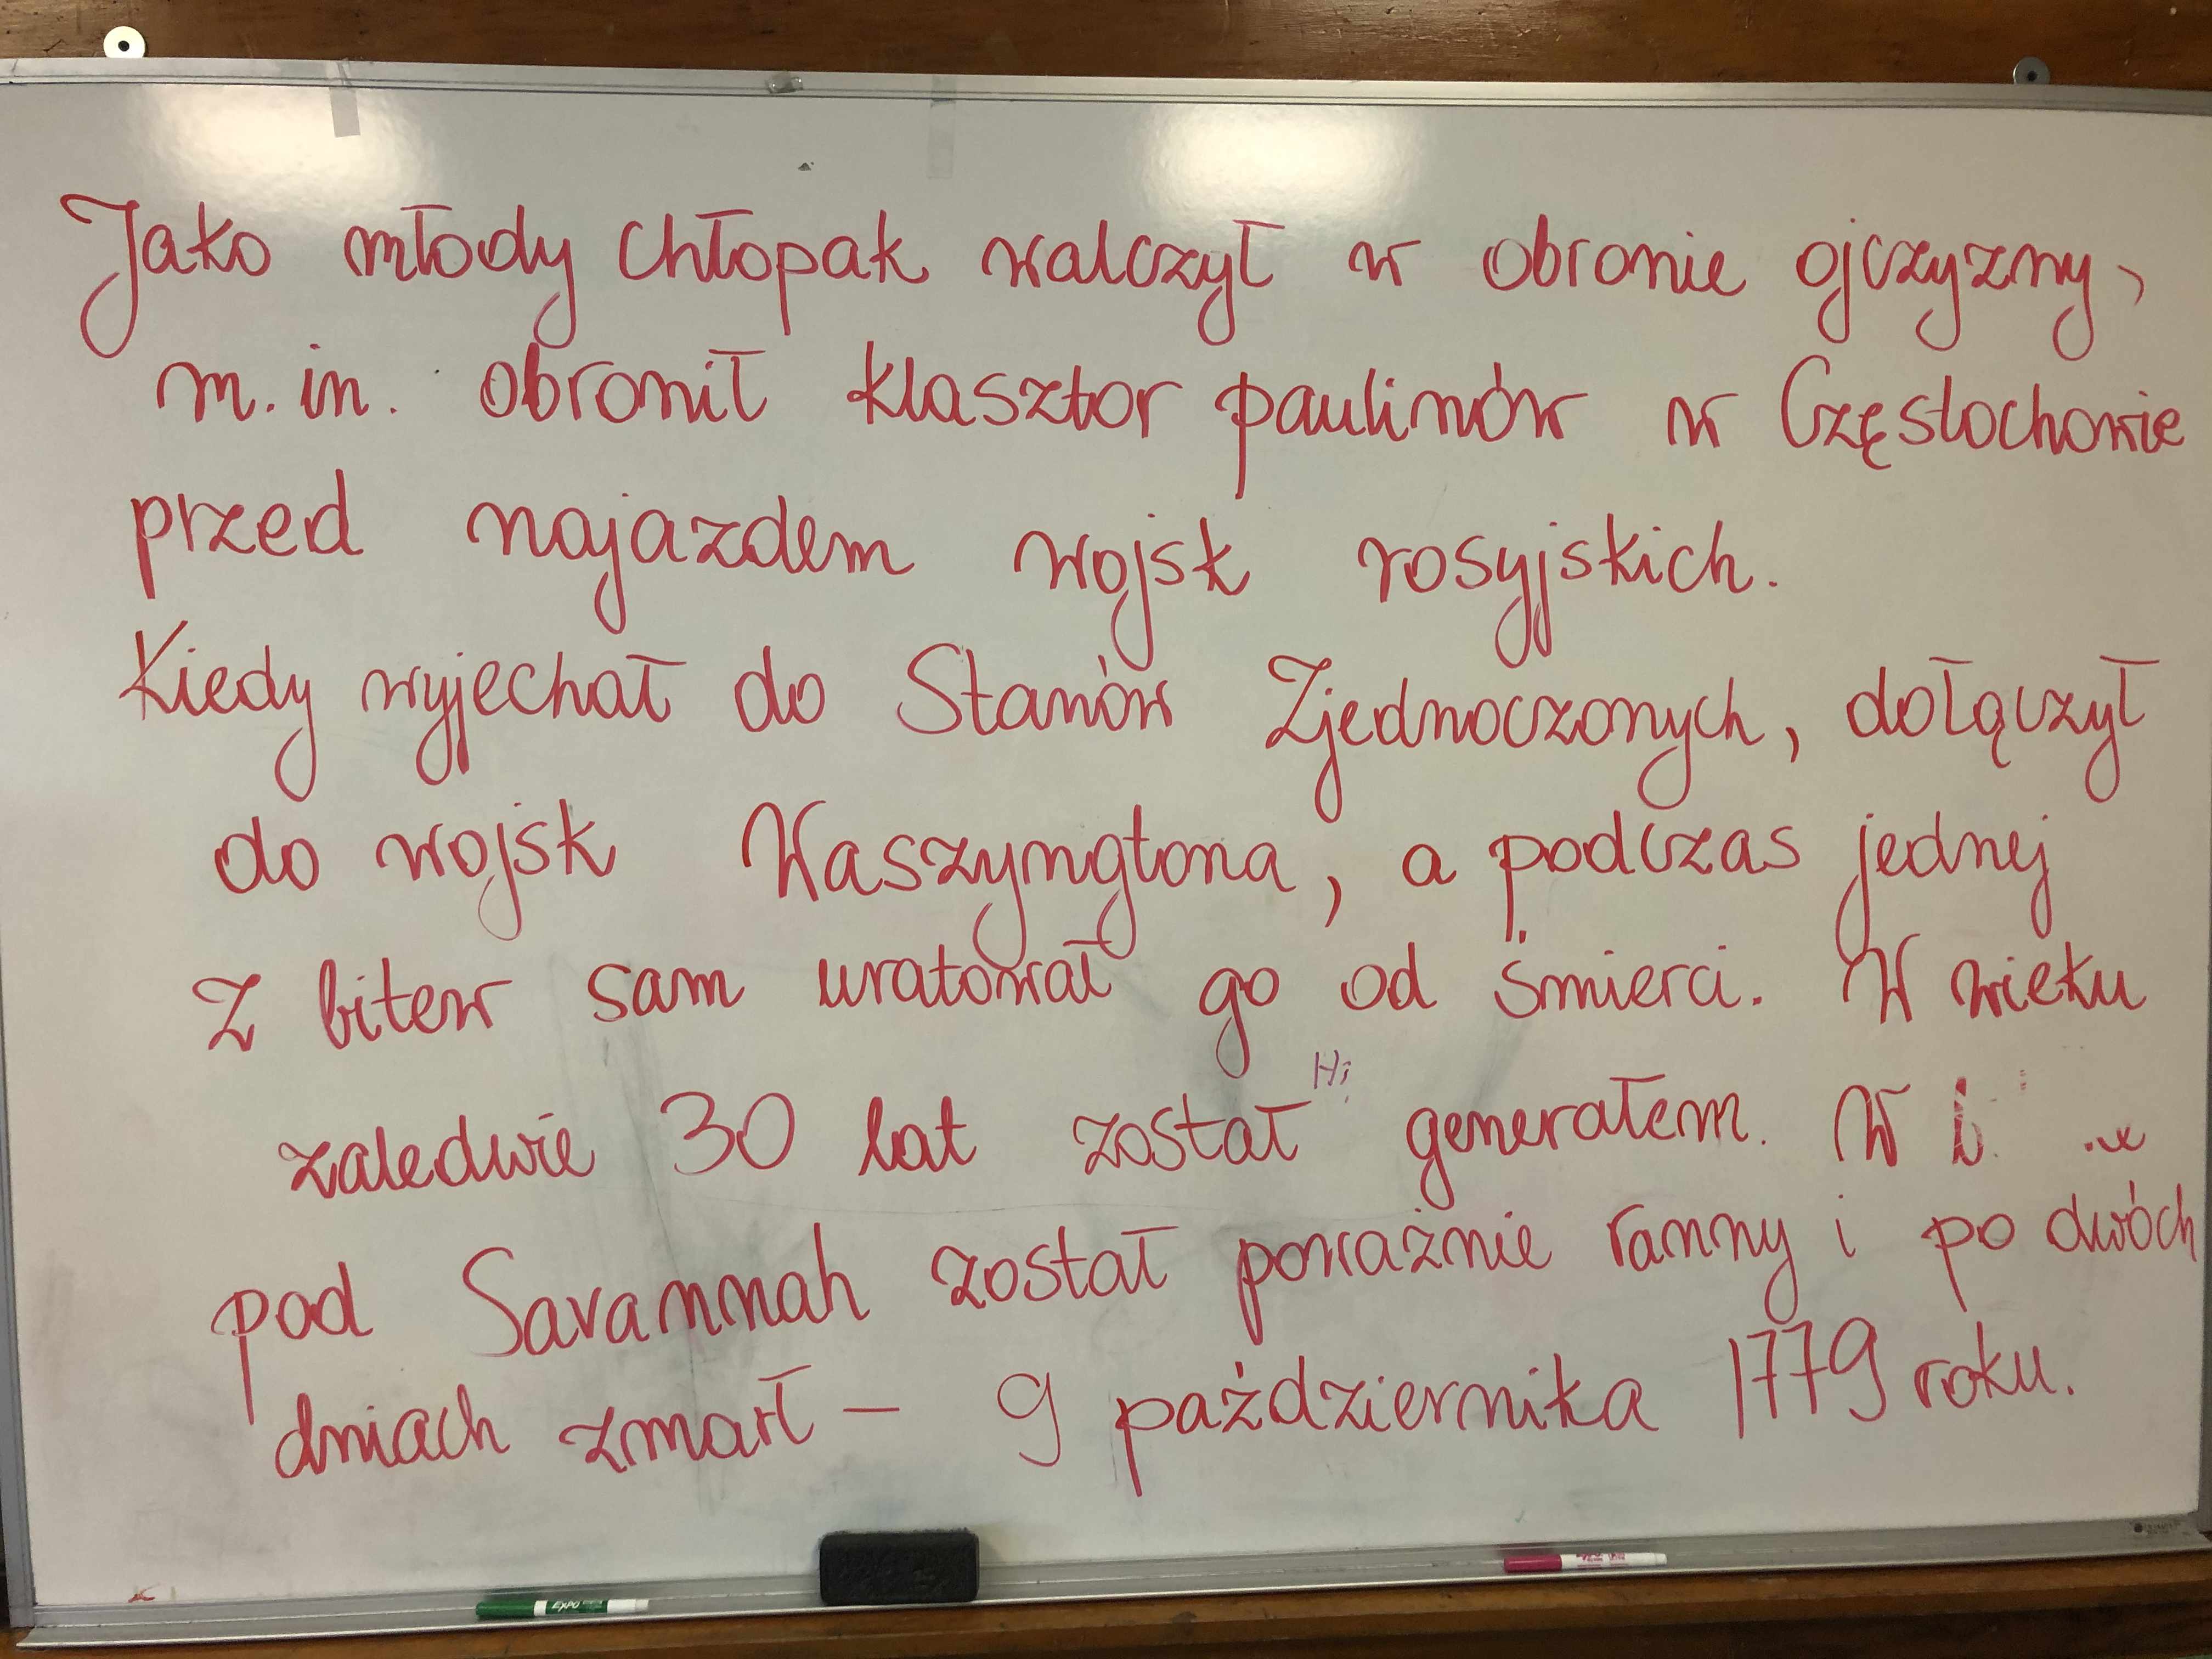 Jako młody chłopak walczył w obronie ojczyzny,
m.in. obronił klasztor paulinów w Częstochowie
przed najazdem wojsk rosyjskich.
Kiedy wyjechał do Stanów Zjednoczonych, dołączył
do wojsk Waszyngtona, a podczas jednej
z bitew sam uratował go od śmierci. W wieku
Hi
zaledwie 30 lat został generałem. W
pod Savannah został poważnie ranny i po dwóch
dniach zmarł – 9 października 1779 roku.
EXPO